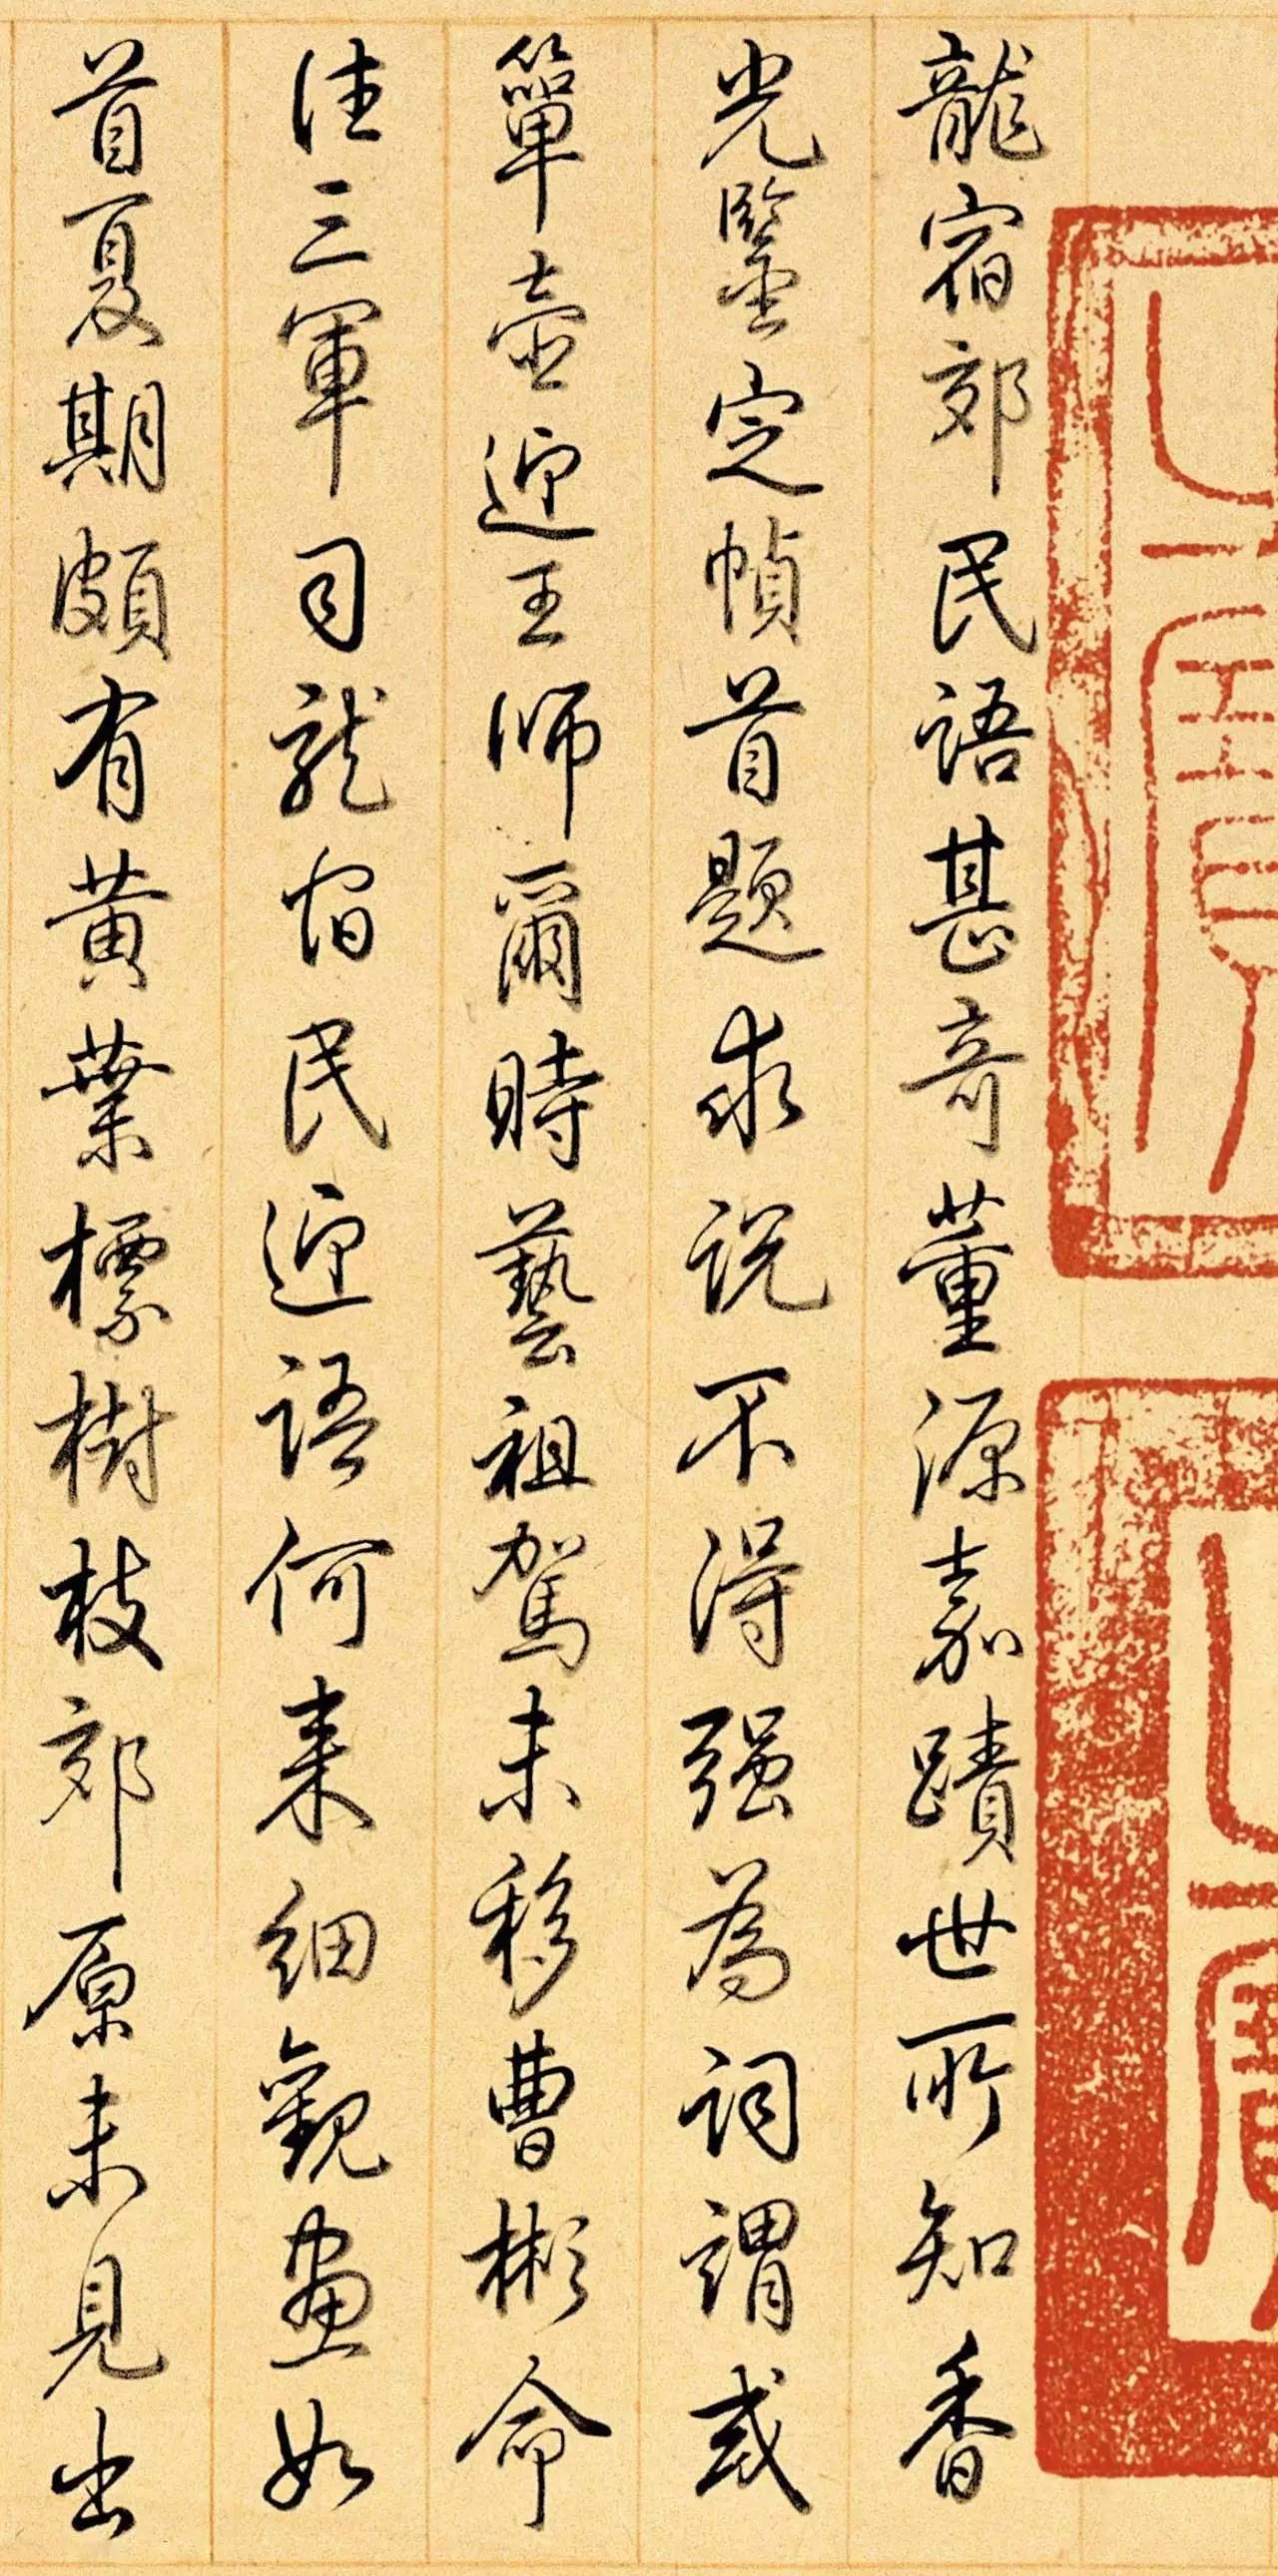 龍宿郊民語甚奇董源嘉蹟世所知香
光鑒定幀首題求說不得强為詞謂或
簞壺迎王師爾時藝祖駕未移曹彬命
往三軍司龍宿民迎語何來細觀畫如
首夏期頗有黃葉標樹枝郊原未見出